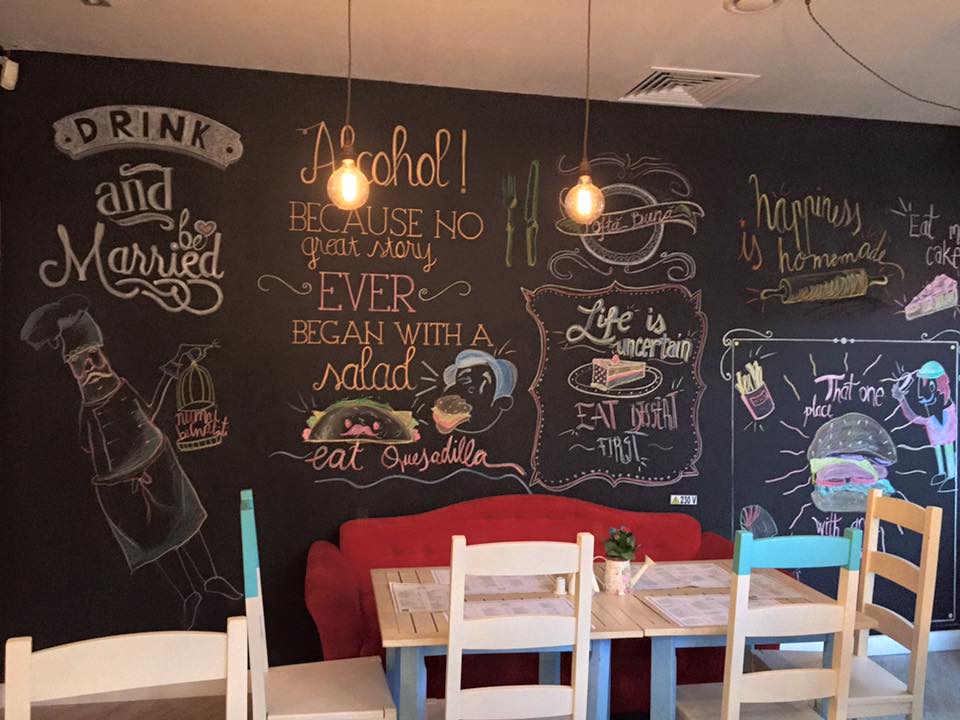 DRINK
and
be
Married
Alcohol!
BECAUSE NO
great story
EVER
BEGAN WITH A
salad
eat Quesadilla
Poftă Bună
Life is
uncertain
EAT DESSERT
FIRST
happiness
is homemade
Eat
cake
That one
place
with
230 V